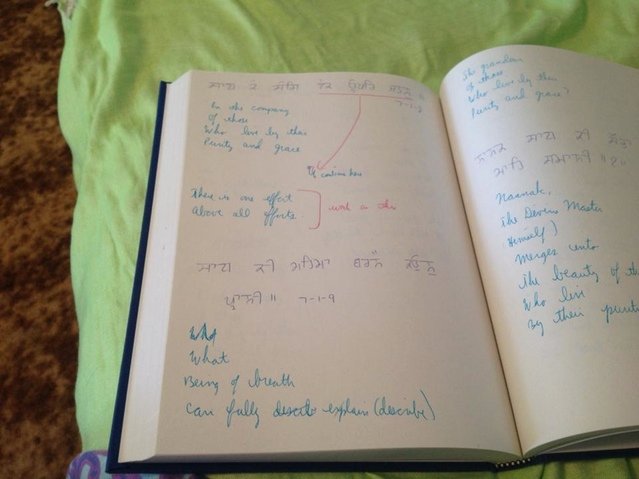 ਸਾਧ ਕੈ ਸੰਗਿ
7-1-9
In the company
of those
Who live by their
Purity and grace
continue here
There is one effort
Above all efforts.
work on this
ਸਾਧ ਕੀ ਮਹਿਮਾ ਬਰਨੈ ਕਉਨੁ
ਪ੍ਰਾਨੀ॥ 7-1-9
Who
What
Being of breath
can fully describe explain (describe)
The grandeur
of those
Who live by their
Purity and grace?
ਨਾਨਕ ਸਾਧ ਕੀ ਸੋਭਾ
ਮਾਹਿ ਸਮਾਨੀ॥੧॥
Naanak,
The Divine Master
Himself)
Merges into
The beauty of
Who live
By their